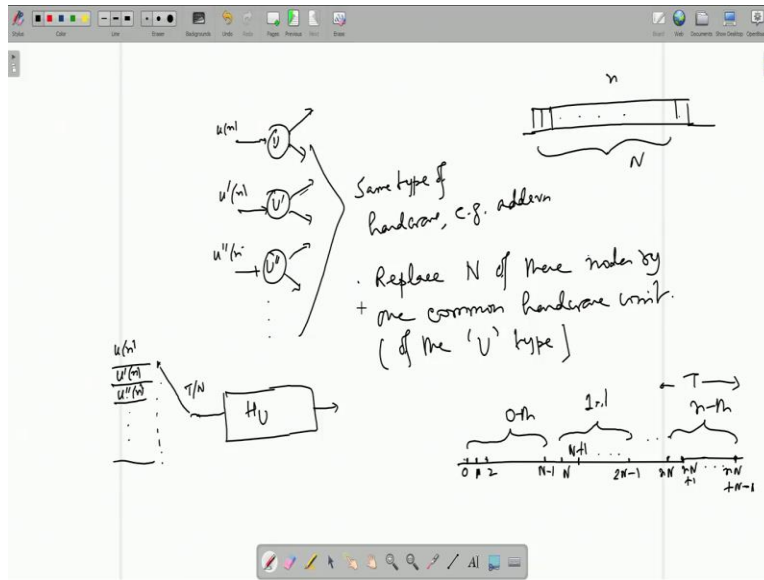 Stylus Color Line Eraser Backgrounds Undo Redo Pages Previous Next Erase Board Web Documents Show Desktop
n
N
u(n)
U
u'(n)
U'
u''(n
U''
Same type of
hardware, e.g. adders
. Replace N of these nodes by
one common hardware unit.
(of the 'U' type)
u(n)
u'(n)
u''(n)
T/N
H_U
T
0-th
1st
n-th
N+1 ....
0 1 2 N-1 N 2N-1 nN nN+1 ... nN+N-1